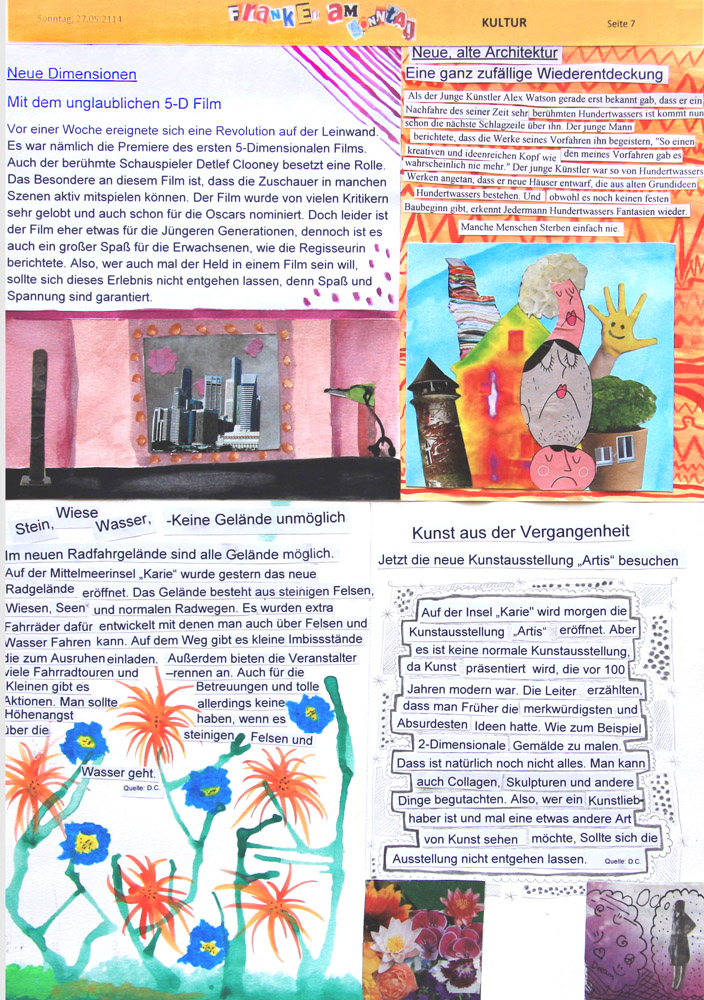 Sonntag, 27.05.2114
FRANKEN AM SONNTAG
KULTUR
Seite 7
Neue Dimensionen
Mit dem unglaublichen 5-D Film
Vor einer Woche ereignete sich eine Revolution auf der Leinwand.
Es war nämlich die Premiere des ersten 5-Dimensionalen Films.
Auch der berühmte Schauspieler Detlef Clooney besetzt eine Rolle.
Das Besondere an diesem Film ist, dass die Zuschauer in manchen
Szenen aktiv mitspielen können. Der Film wurde von vielen Kritikern
sehr gelobt und auch schon für die Oscars nominiert. Doch leider ist
der Film eher etwas für die Jüngeren Generationen, dennoch ist es
auch ein großer Spaß für die Erwachsenen, wie die Regisseurin
berichtete. Also, wer auch mal der Held in einem Film sein will,
sollte sich dieses Erlebnis nicht entgehen lassen, denn Spaß und
Spannung sind garantiert.
Neue, alte Architektur
Eine ganz zufällige Wiederentdeckung
Als der Junge Künstler Alex Watson gerade erst bekannt gab, dass er ein
Nachfahre des seiner Zeit sehr berühmten Hundertwassers ist kommt nun
schon die nächste Schlagzeile über ihn. Der junge Mann
berichtete, dass die Werke seines Vorfahren ihn begeistern, "So einen
kreativen und ideenreichen Kopf wie den meines Vorfahren gab es
wahrscheinlich nie mehr." Der junge Künstler war so von Hundertwassers
Werken angetan, dass er neue Häuser entwarf, die aus alten Grundideen
Hundertwassers bestehen. Und obwohl es noch keinen festen
Baubeginn gibt, erkennt Jedermann Hundertwassers Fantasien wieder.
Manche Menschen Sterben einfach nie.
Stein, Wiese Wasser, -Keine Gelände unmöglich
Im neuen Radfahrgelände sind alle Gelände möglich.
Auf der Mittelmeerinsel „Karie" wurde gestern das neue
Radgelände eröffnet. Das Gelände besteht aus steinigen Felsen,
Wiesen, Seen und normalen Radwegen. Es wurden extra
Fahrräder dafür entwickelt mit denen man auch über Felsen und
Wasser Fahren kann. Auf dem Weg gibt es kleine Imbissstände
die zum Ausruhen einladen. Außerdem bieten die Veranstalter
viele Fahrradtouren und –rennen an. Auch für die
Kleinen gibt es Betreuungen und tolle
Aktionen. Man sollte allerdings keine
Höhenangst haben, wenn es
über die steinigen Felsen und
Wasser geht.
Quelle: D.C.
Kunst aus der Vergangenheit
Jetzt die neue Kunstausstellung „Artis" besuchen
Auf der Insel „Karie" wird morgen die
Kunstausstellung „Artis" eröffnet. Aber
es ist keine normale Kunstausstellung,
da Kunst präsentiert wird, die vor 100
Jahren modern war. Die Leiter erzählten,
dass man Früher die merkwürdigsten und
Absurdesten Ideen hatte. Wie zum Beispiel
2-Dimensionale Gemälde zu malen.
Dass ist natürlich noch nicht alles. Man kann
auch Collagen, Skulpturen und andere
Dinge begutachten. Also, wer ein Kunstlieb-
haber ist und mal eine etwas andere Art
von Kunst sehen möchte, Sollte sich die
Ausstellung nicht entgehen lassen.
Quelle: D.C.